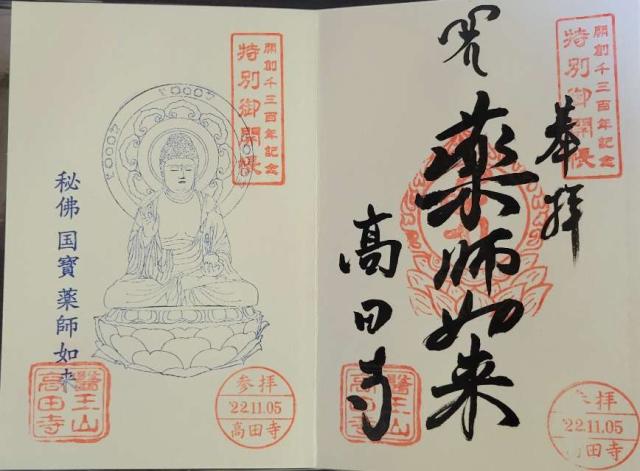 開創千三百年記念
特別御開帳
奉拝
薬師如来
高田寺
拝
'22.11.05
田寺
醫王山
高田寺
開創千三百年記念
特別御開帳
秘佛 国寶 薬師如来
参拝
'22.11.05
高田寺
醫王山
高田寺